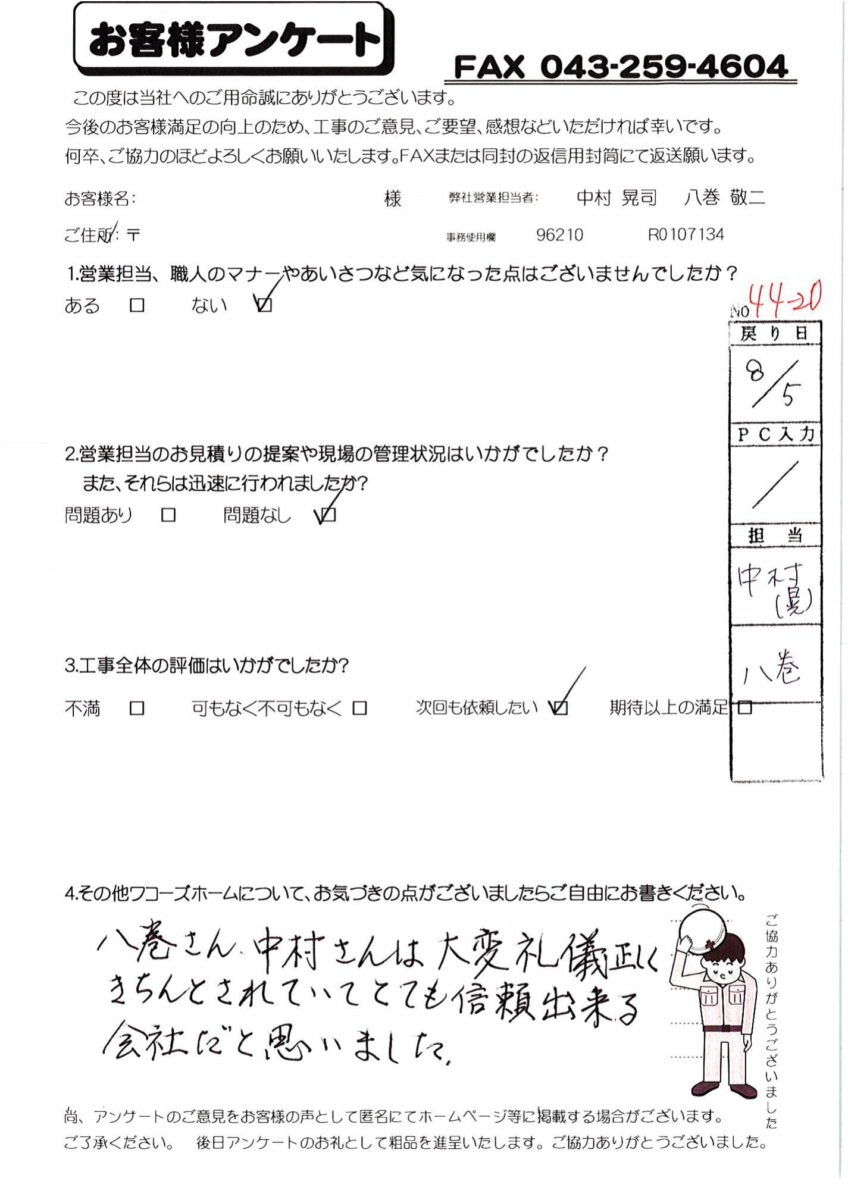 お客様アンケート
FAX 043-259-4604
この度は当社へのご用命誠にありがとうございます。
今後のお客様満足の向上のため、工事のご意見、ご要望、感想などいただければ幸いです。
何卒、ご協力のほどよろしくお願いいたします。FAXまたは同封の返信用封筒にて返送願います。
お客様名: 様 弊社営業担当者: 中村 晃司 八巻 敬二
ご住所: 〒 事務使用欄 96210 R0107134
1.営業担当、職人のマナーやあいさつなど気になった点はございませんでしたか?
ある □ ない ☑
No 44-20
戻り日
8/5
PC入力
/
担当
中村
(晃)
八巻
2.営業担当のお見積りの提案や現場の管理状況はいかがでしたか?
また、それらは迅速に行われましたか?
問題あり □ 問題なし ☑
3.工事全体の評価はいかがでしたか?
不満 □ 可もなく不可もなく □ 次回も依頼したい ☑ 期待以上の満足 □
4.その他ワコーズホームについて、お気づきの点がございましたらご自由にお書きください。
八巻さん、中村さんは大変礼儀正しく
きちんとされていてとても信頼出来る
会社だと思いました。
ご協力ありがとうございました
尚、アンケートのご意見をお客様の声として匿名にてホームページ等に掲載する場合がございます。
ご了承ください。 後日アンケートのお礼として粗品を進呈いたします。ご協力ありがとうございました。